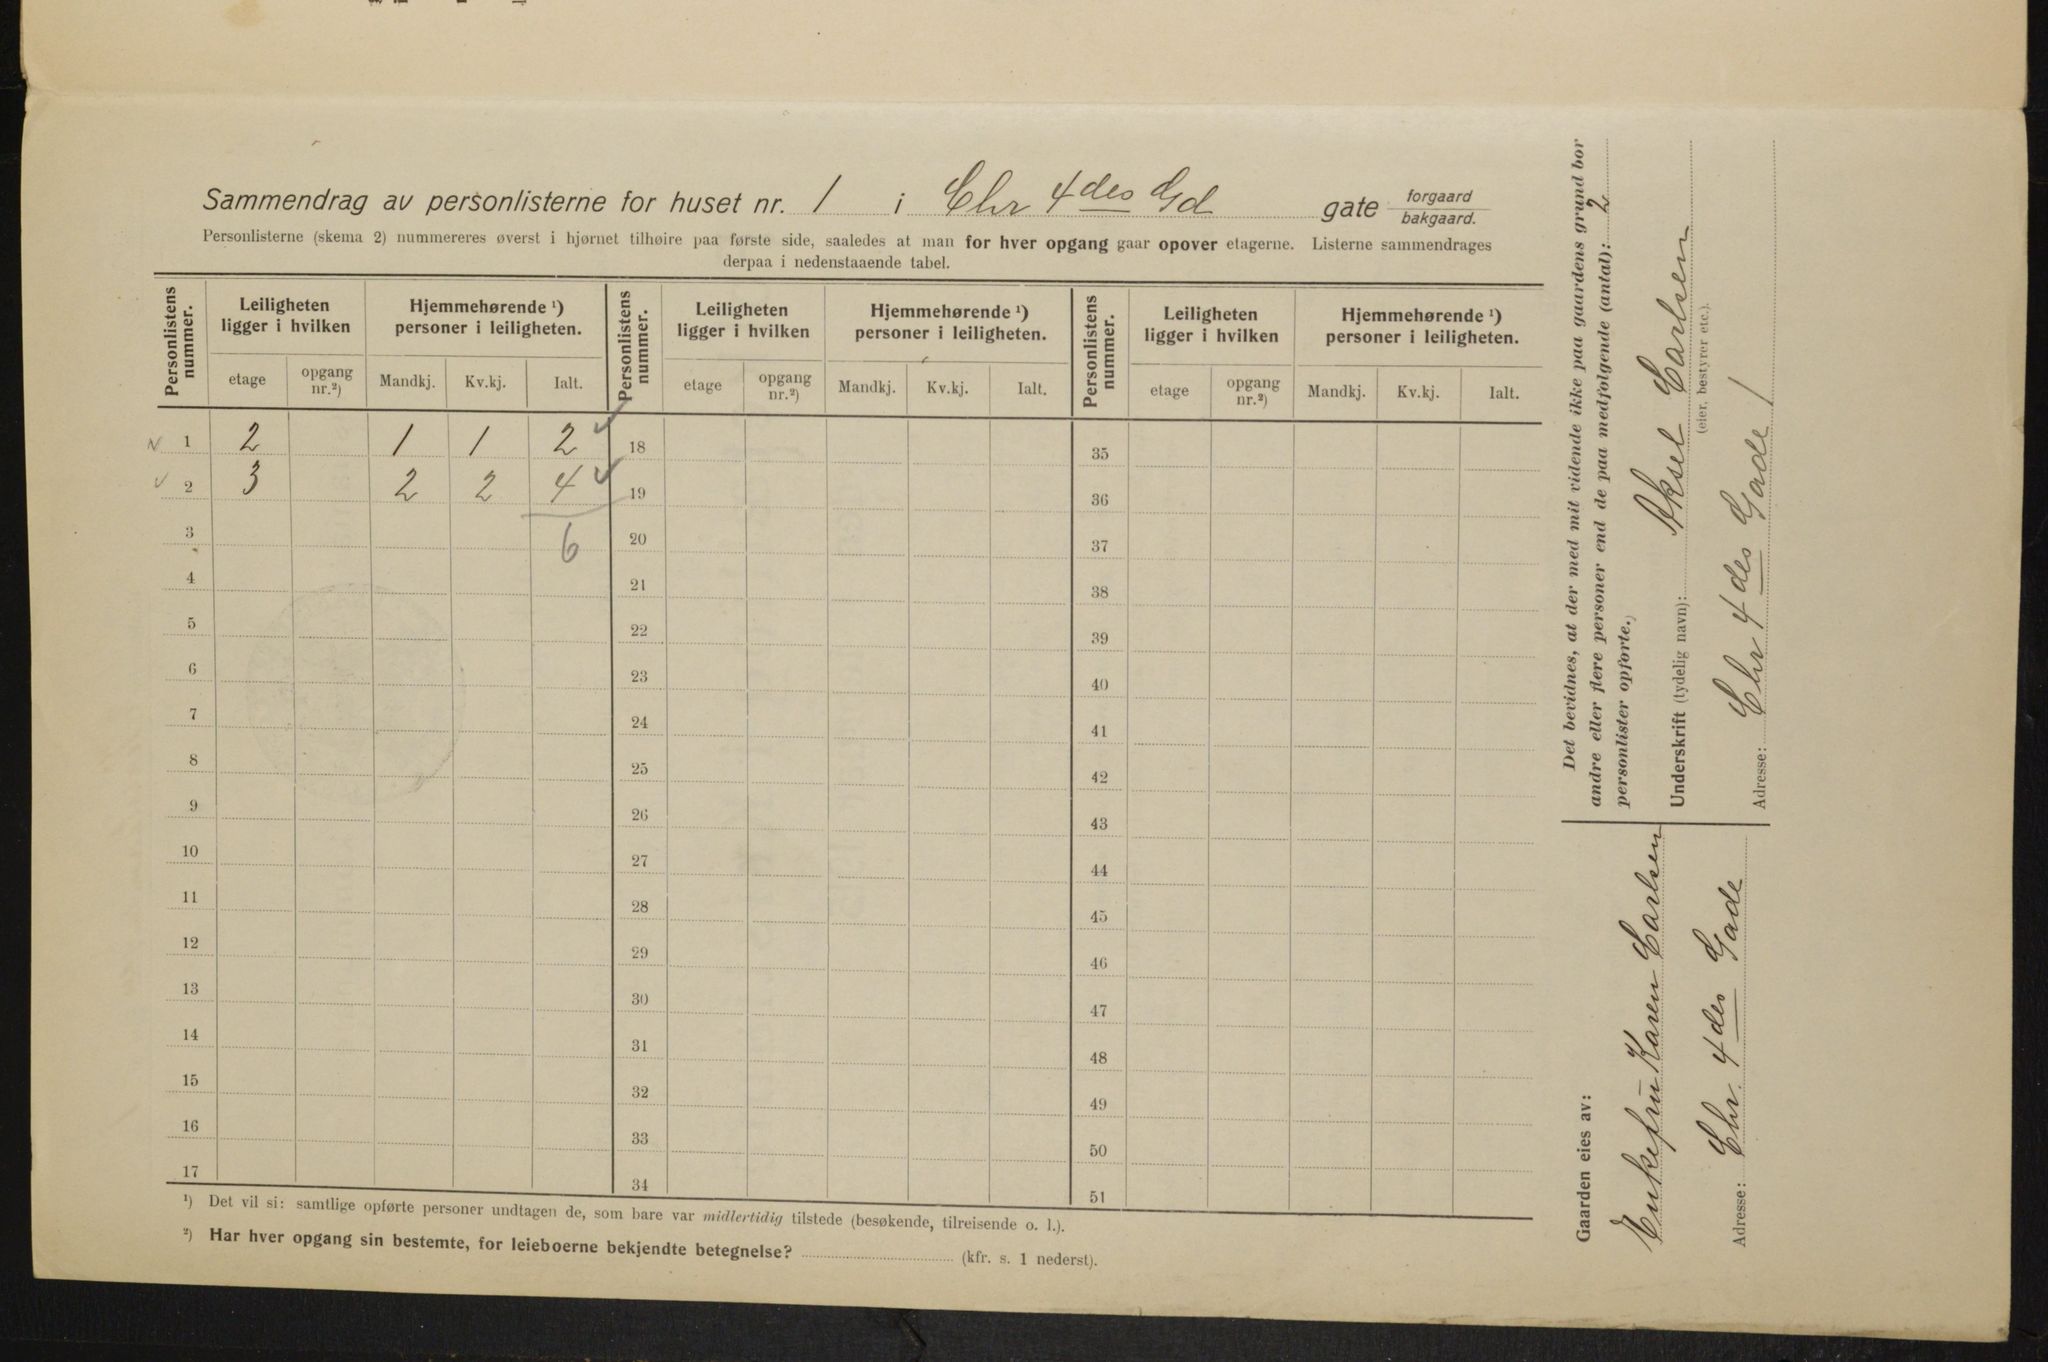 Sammendrag av personlisterne for huset nr. 1 i Chr 4des Gd gate forgaard
bakgaard.
Personlisterne (skema 2) nummereres øverst i hjørnet tilhøire paa første side, saaledes at man for hver opgang gaar opover etagerne. Listerne sammendrages
derpaa i nedenstaaende tabel.
Personlistens nummer. Leiligheten ligger i hvilken Hjemmehørende ¹) personer i leiligheten. Personlistens nummer. Leiligheten ligger i hvilken Hjemmehørende ¹) personer i leiligheten. Personlistens nummer. Leiligheten ligger i hvilken Hjemmehørende ¹) personer i leiligheten.
etage opgang nr.²) Mandkj. Kv.kj. Ialt. etage opgang nr.²) Mandkj. Kv.kj. Ialt. etage opgang nr.²) Mandkj. Kv.kj. Ialt.
1 2 1 1 2 18 35
2 3 2 2 4 19 36
3 6 20 37
4 21 38
5 22 39
6 23 40
7 24 41
8 25 42
9 26 43
10 27 44
11 28 45
12 29 46
13 30 47
14 31 48
15 32 49
16 33 50
17 34 51
¹) Det vil si: samtlige opførte personer undtagen de, som bare var midlertidig tilstede (besøkende, tilreisende o. l.).
²) Har hver opgang sin bestemte, for leieboerne bekjendte betegnelse? (kfr. s. 1 nederst).
Det bevidnes, at der med mit vidende ikke paa gaardens grund bor
andre eller flere personer end de paa medfølgende (antal): 2
personlister opførte.
Underskrift (tydelig navn): Aksel Carlsen
(eier, bestyrer etc.).
Adresse: Chr 4des Gade 1
Gaarden eies av:
Enkefru Karen Carlsen
Adresse: Chr. 4des Gade